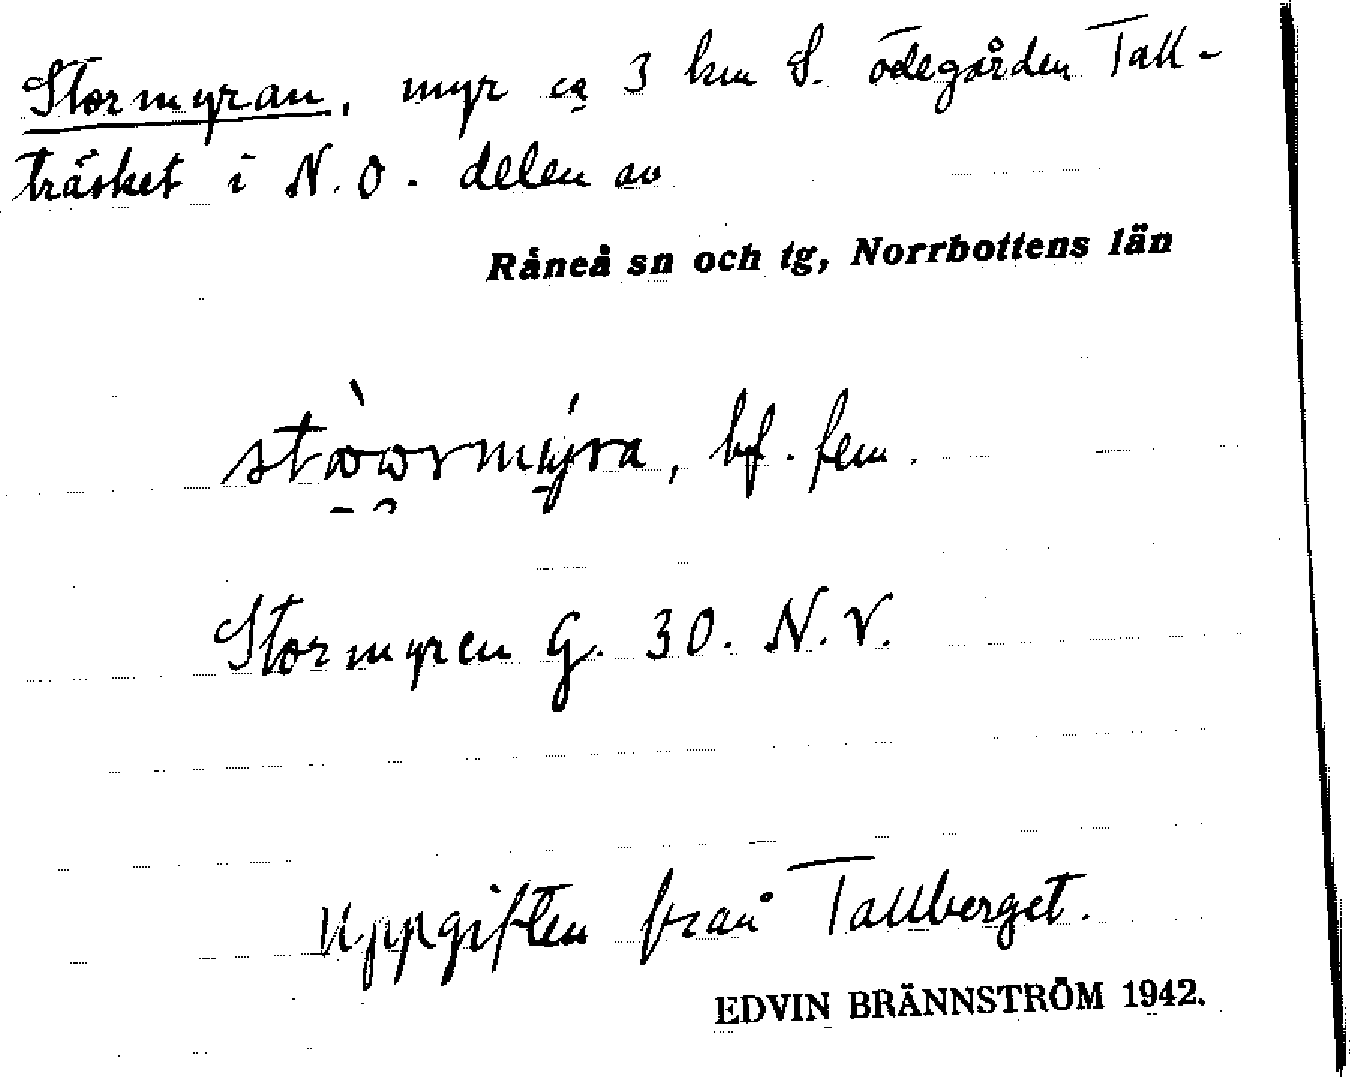 Stormyran, myr ca 3 km S. ödegården Tall-
träsket i N.O. delen av
Råneå sn och tg, Norrbottens län
bf. fem.
Stormyren G. 30. N.V.
Uppgiften från Tallberget.
EDVIN BRÄNNSTRÖM 1942.